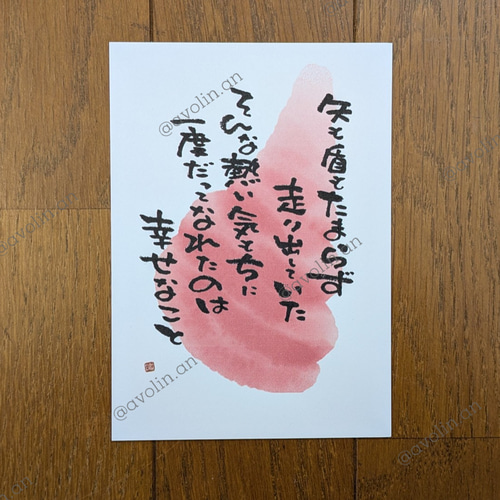 矢も盾もたまらず
走り出していた
そんな熱い気持ちに
一度だってなれたのは
幸せなこと
@avolin.an
@avolin.an
@avolin.an
@avolin.an
@avolin.an